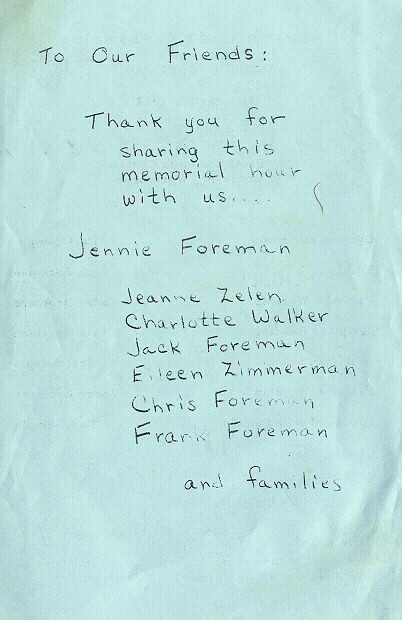 To Our Friends:
Thank you for
sharing this
memorial hour
with us....
Jennie Foreman
Jeanne Zelen
Charlotte Walker
Jack Foreman
Eileen Zimmerman
Chris Foreman
Frank Foreman
and families